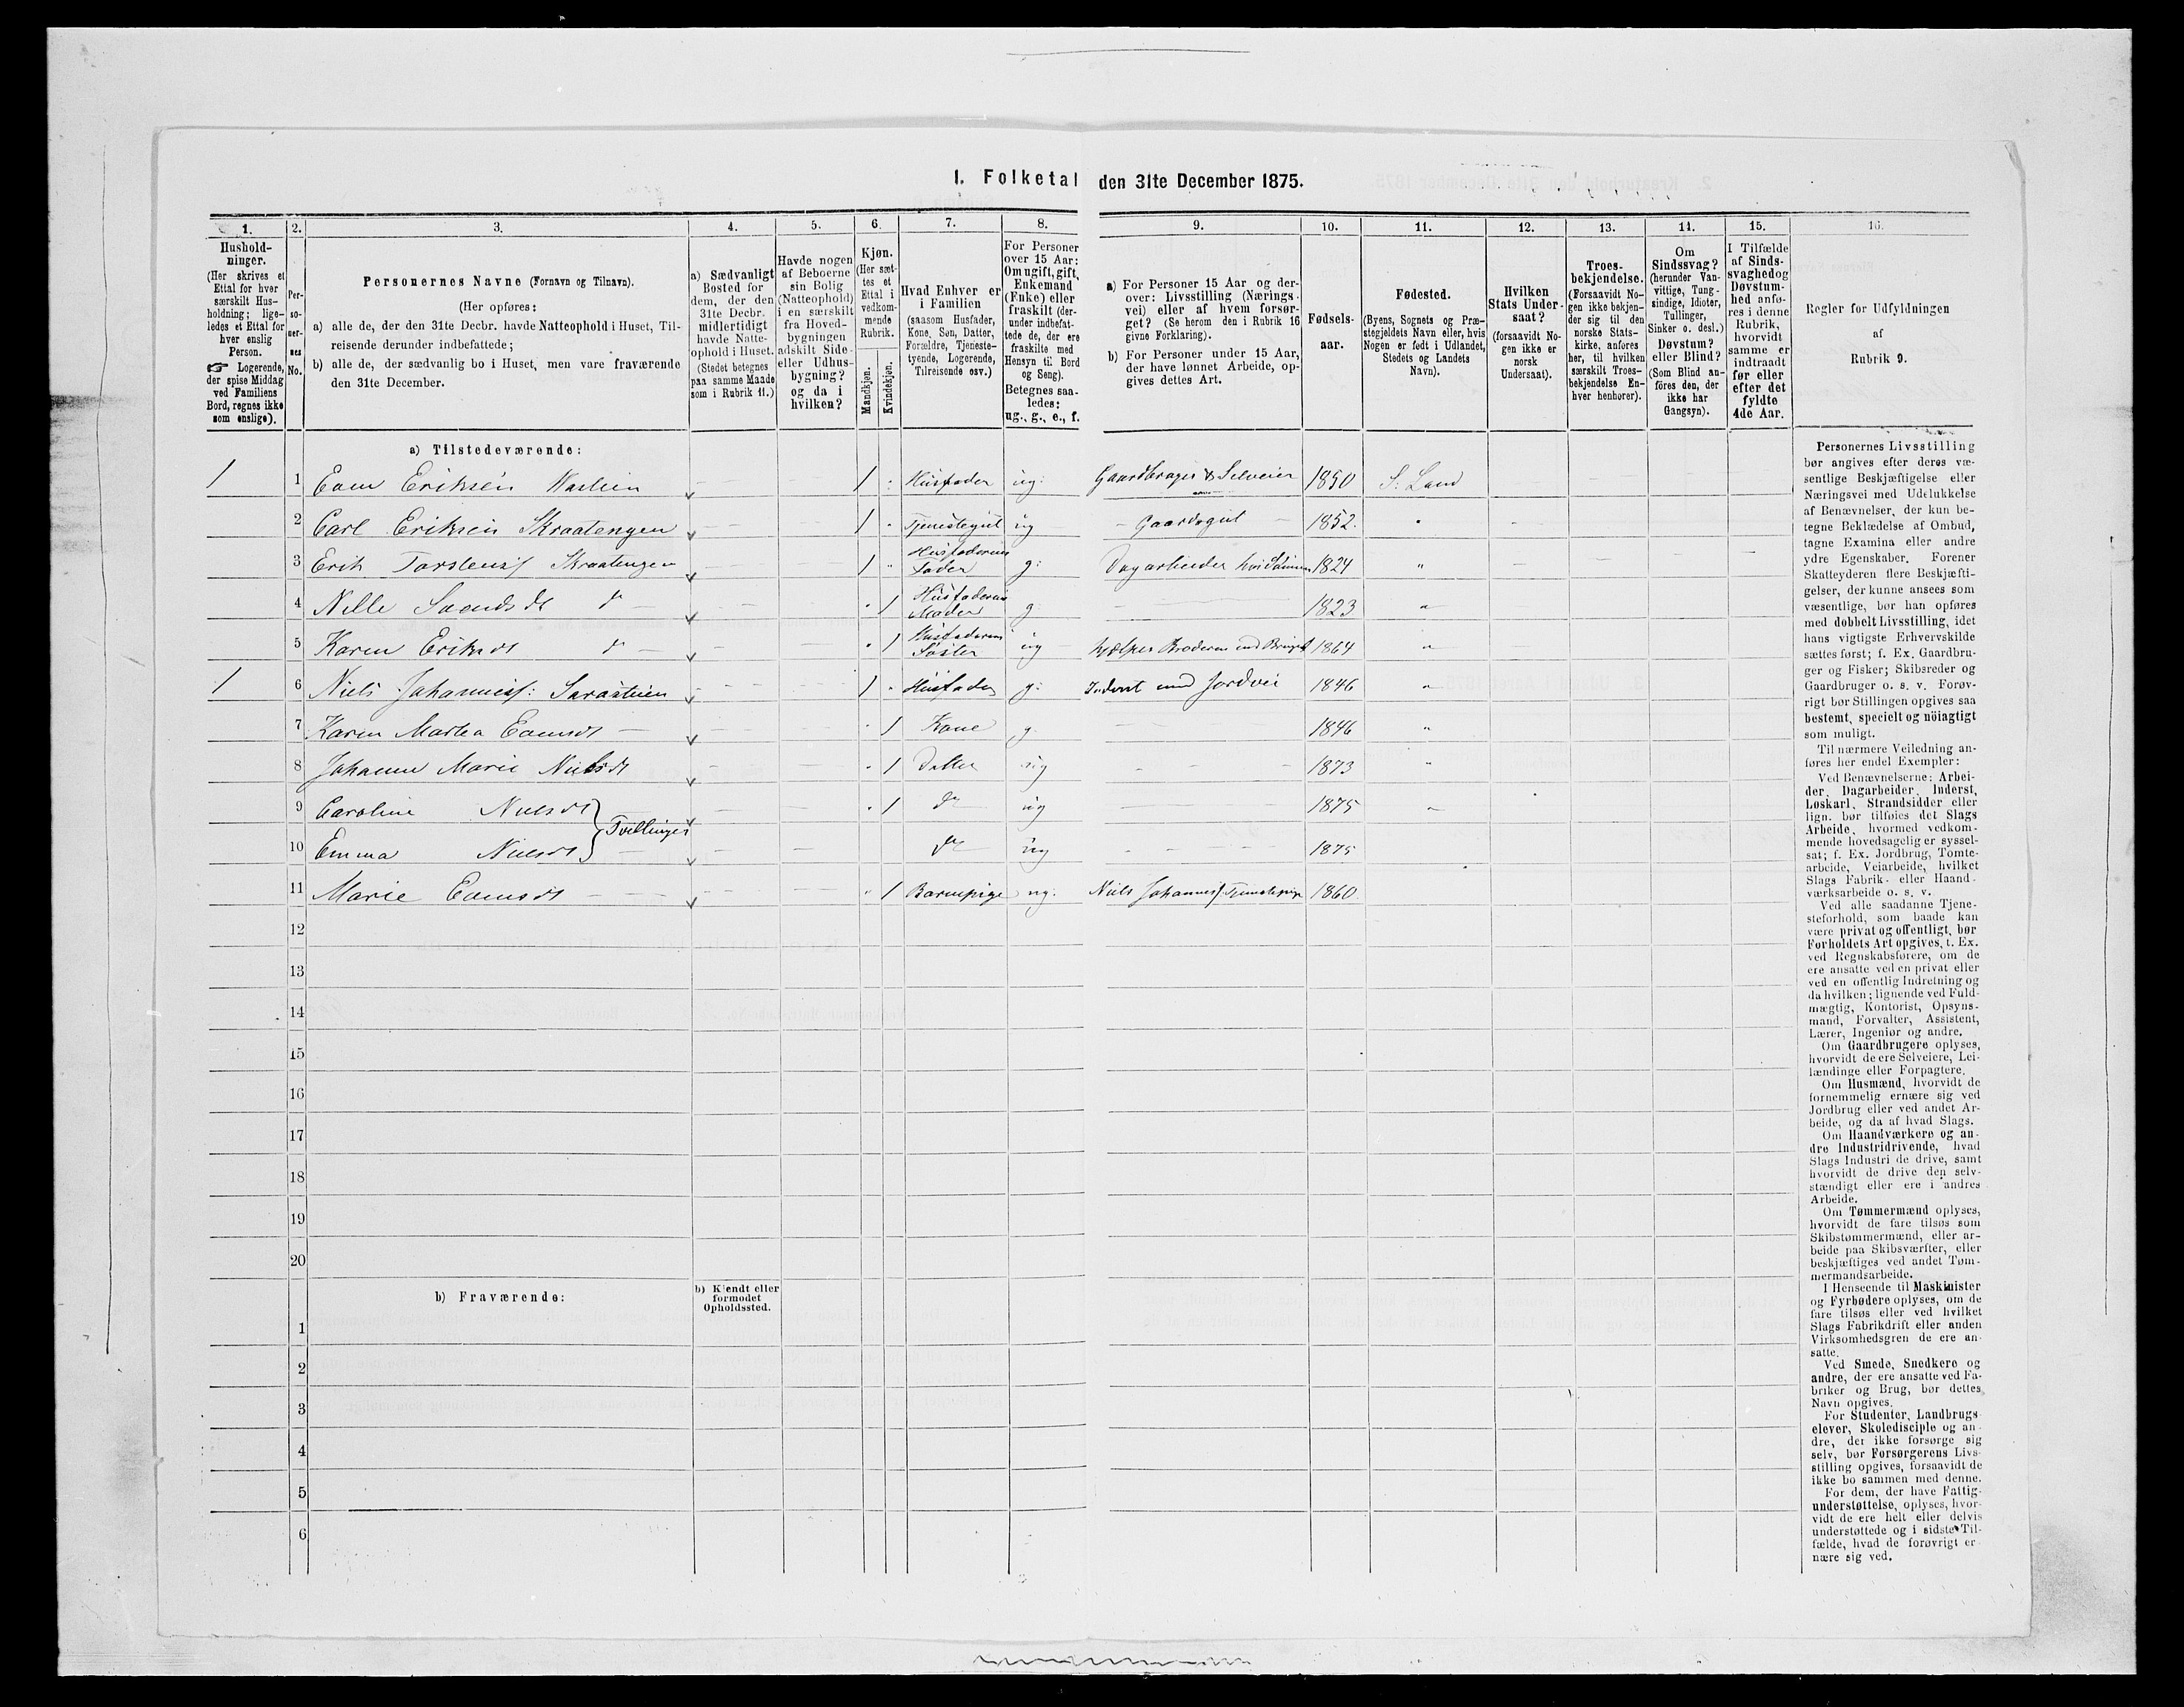 1. Folketal den 31te December 1875.
1. 2. 3. 4. 5. 6. 7. 8. 9. 10. 11. 12. 13. 14. 15. 16.
Hushold-
ninger.
(Her skrives et
Ettal for hver
særskilt Hus-
holdning; lige-
ledes et Ettal for
hver enslig
Person.
☞ Logerende,
der spise Middag
ved Familiens
Bord, regnes ikke
som enslige).
Per-
so-
ner-
nes
No.
Personernes Navne (Fornavn og Tilnavn).
(Her opføres:
a) alle de, der den 31te Decbr. havde Natteophold i Huset, Til-
reisende derunder indbefattede;
b) alle de, der sædvanlig bo i Huset, men vare fraværende
den 31te December.
a) Sædvanligt
Bosted for
dem, der den
31te Decbr.
midlertidigt
havde Natte-
ophold i Huset.
(Stedet betegnes
paa samme Maade
som i Rubrik 11.)
Havde nogen
af Beboerne
sin Bolig
(Natteophold)
i en særskilt
fra Hoved-
bygningen
adskilt Side-
eller Udhus-
bygning?
og da i
hvilken?
Kjøn.
(Her sæt-
tes et
Ettal i
vedkom-
mende
Rubrik.
Mandkjøn.
Kvindekjøn.
Hvad Enhver er
i Familien
(saasom Husfader,
Kone, Søn, Datter,
Forældre, Tjeneste-
tyende, Logerende,
Tilreisende osv.)
For Personer
over 15 Aar:
Om ugift, gift,
Enkemand
(Enke) eller
fraskilt (der-
under indbefat-
tede de, der ere
fraskilte med
Hensyn til Bord
og Seng).
Betegnes saa-
ledes:
ug., g., e., f.
a) For Personer 15 Aar og der-
over: Livsstilling (Nærings-
vei) eller af hvem forsør-
get? (Se herom den i Rubrik 16
givne Forklaring).
b) For Personer under 15 Aar,
der have lønnet Arbeide, op-
gives dettes Art.
Fødsels-
aar.
Fødested.
(Byens, Sognets og Præ-
stegjeldets Navn eller, hvis
Nogen er født i Udlandet,
Stedets og Landets
Navn).
Hvilken
Stats Under-
saat?
(forsaavidt No-
gen ikke er
norsk
Undersaat).
Troes-
bekjendelse.
(Forsaavidt No-
gen ikke bekjen-
der sig til den
norske Stats-
kirke, anføres
her, til hvilken
særskilt Troes-
bekjendelse En-
hver henhører).
Om
Sindssvag?
(herunder Van-
vittige, Tung-
sindige, Idioter,
Tullinger,
Sinker o. desl.)
Døvstum?
eller Blind?
(Som Blind an-
føres den, der
ikke har
Gangsyn).
I Tilfælde
af Sinds-
svaghed og
Døvstum-
hed anfø-
res i denne
Rubrik,
hvorvidt
samme er
indtraadt
før eller
efter det
fyldte
4de Aar.
Regler for Udfyldningen
af
Rubrik 9.
a) Tilstedeværende:
1 1 Eriksen 1 Husfader ug: Gaardbruger & Selveier 1850 S: Land
2 Carl Eriksen Skraatengen 1 Tjenestegut ug Gaardsgut 1852.
3 Erik Torstens: Skraatengen 1 Husfaderens Fader g: Dagarbeider hos Sønnen 1824 "
4 Nille do 1 Husfaderens Moder g 1823 "
5 Karen Eriksdt do 1 Husfaderens Søster ug hjælper Broderen med Bruget 1864 "
1 6 Niels Johannesf: 1 Husfader g: Inderst med Jordvei 1846 "
7 Karen Martea 1 Kone g 1846 "
8 Johanne Marie Nielsdt 1 Datter ug 1873 "
9 Caroline Nielsdt 1 do ug 1875 "
Tvillinger
10 Emma Nielsdt do ug 1875
11 Marie 1 Barnepige ug. Niels Johannesf: Tjenestepige 1860
12
13
14
15
16
17
18
19
20
b) Fraværende:
b) Kjendt eller
formodet
Opholdssted.
1
2
3
4
5
6
Personernes Livsstilling
bør angives efter deres væ-
sentlige Beskjæftigelse eller
Næringsvei med Udelukkelse
af Benævnelser, der kun be-
tegne Beklædelse af Ombud,
tagne Examina eller andre
ydre Egenskaber. Forener
Skatteyderen flere Beskjæfti-
gelser, der kunne ansees som
væsentlige, bør han opføres
med dobbelt Livsstilling, idet
hans vigtigste Erhvervskilde
sættes først; f. Ex. Gaardbru-
ger og Fisker; Skibsreder og
Gaardbruger o. s. v. Forøv-
rigt bør Stillingen opgives saa
bestemt, specielt og nöiagtigt
som muligt.
Til nærmere Veiledning an-
føres her endel Exempler:
Ved Benævnelserne: Arbei-
der, Dagarbeider, Inderst,
Løskarl, Strandsidder eller
lign. bør tilføies det Slags
Arbeide, hvormed vedkom-
mende hovedsagelig er syssel-
sat; f. Ex. Jordbrug, Tomte-
arbeide, Veiarbeide, hvilket
Slags Fabrik- eller Haand-
værksarbeide o. s. v.
Ved alle saadanne Tjene-
steforhold, som baade kan
være privat og offentligt, bør
Forholdets Art opgives, t. Ex.
ved Regnskabsførere, om de
ere ansatte ved en privat eller
ved en offentlig Indretning og
da hvilken; lignende ved Fuld-
mægtig, Kontorist, Opsyns-
mand, Forvalter, Assistent,
Lærer, Ingeniør og andre.
Om Gaardbrugere oplyses,
hvorvidt de ere Selveiere, Lei-
lændinge eller Forpagtere.
Om Husmænd, hvorvidt de
fornemmelig ernære sig ved
Jordbrug eller ved andet Ar-
beide, og da af hvad Slags.
Om Haandværkere og an-
dre Industridrivende, hvad
Slags Industri de drive, samt
hvorvidt de drive den selv-
stændigt eller ere i andres
Arbeide.
Om Tømmermænd oplyses,
hvorvidt de fare tilsøs som
Skibstømmermænd, eller ar-
beide paa Skibsværfter, eller
beskjæftiges ved andet Tøm-
mermandsarbeide.
I Henseende til Maskinister
og Fyrbødere oplyses, om de
fare tilsøs eller ved hvilket
Slags Fabrikdrift eller anden
Virksomhedsgren de ere an-
satte.
Ved Smede, Snedkere og
andre, der ere ansatte ved Fa-
briker og Brug, bør dettes
Navn opgives.
For Studenter, Landbrugs-
elever, Skoledisciple og an-
dre, der ikke forsørge sig
selv, bør Forsørgerens Livs-
stilling opgives, forsaavidt de
ikke bo sammen med denne.
For dem, der have Fattig-
understøttelse, oplyses, hvor-
vidt de ere helt eller delvis
understøttede og i sidste Til-
fælde, hvad de forøvrigt er-
nære sig ved.